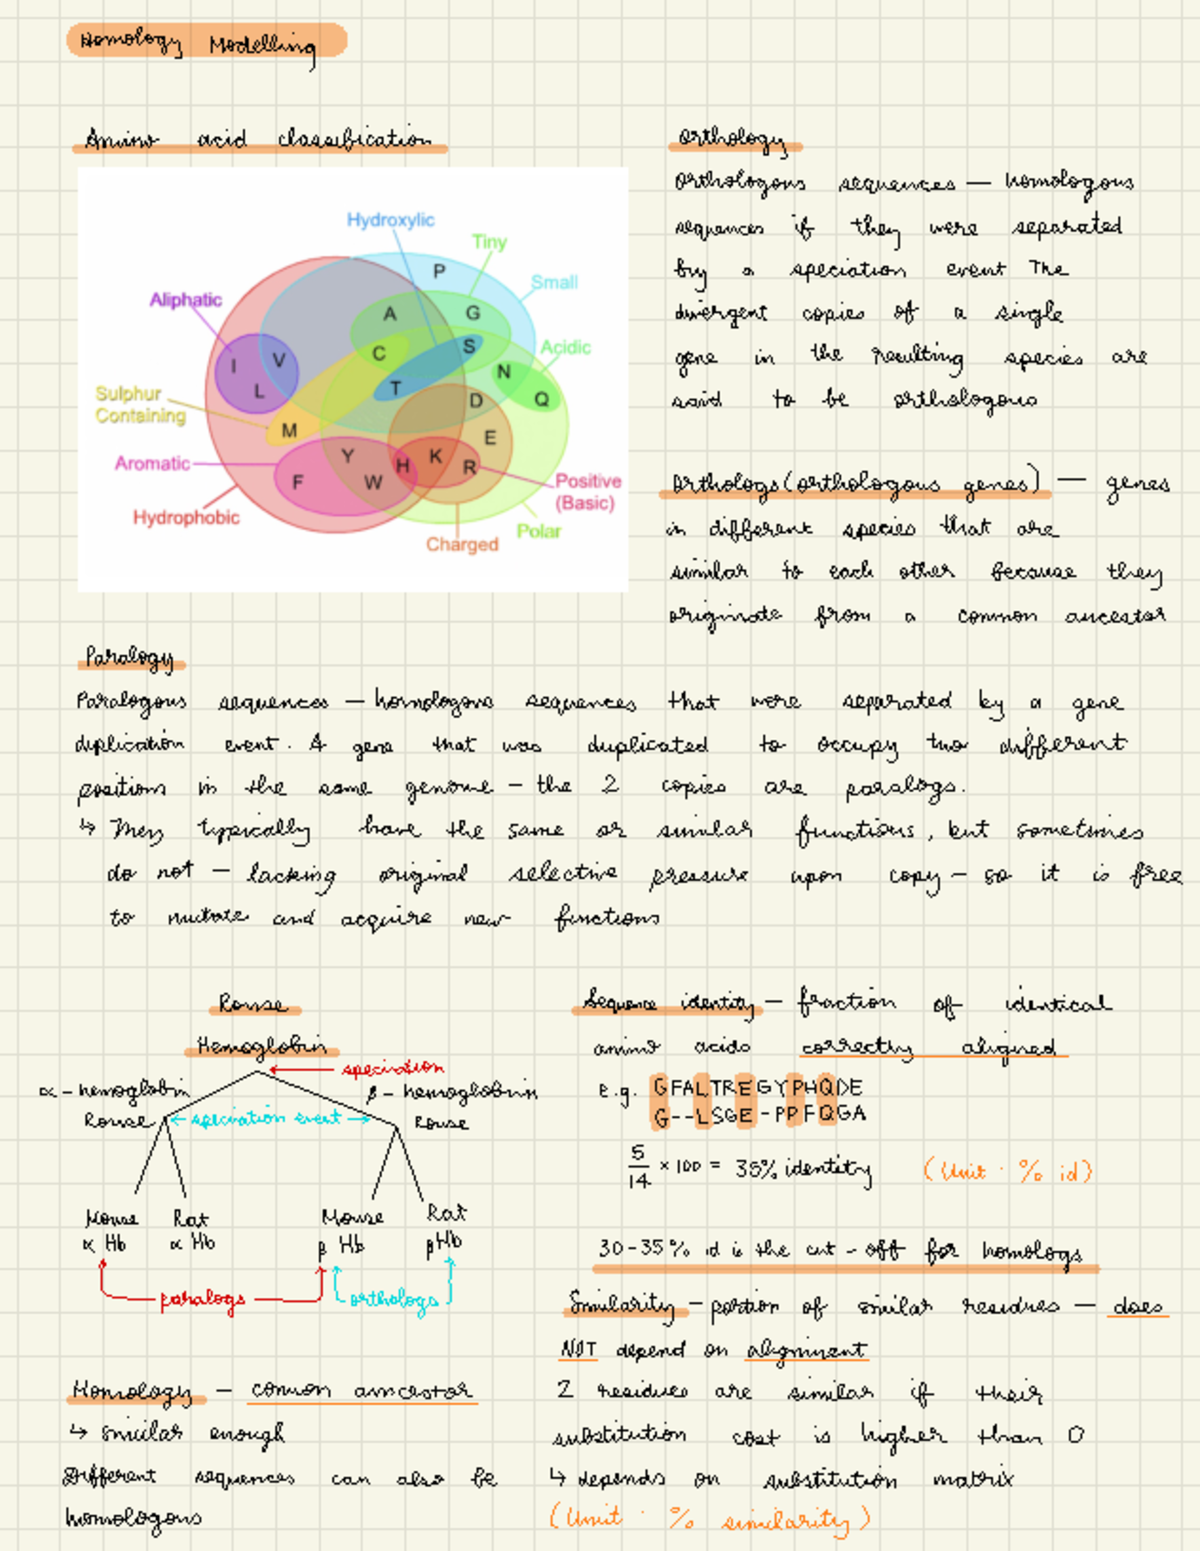 Homology Modelling
Amino acid classification
Hydroxylic
Tiny
P
Small
Aliphatic
A
G
Acidic
I
V
C
S
N
L
T
D
Q
Sulphur
Containing
M
E
Aromatic
Y
H
K
R
F
W
Positive
(Basic)
Hydrophobic
Polar
Charged
Orthology
Orthologous sequences — homologous
sequences if they were separated
by a speciation event The
divergent copies of a single
gene in the resulting species are
said to be orthologous
Orthologs (orthologous genes) — genes
in different species that are
similar to each other because they
originate from a common ancestor
Paralogy
Paralogous sequences — homologous sequences that were separated by a gene
duplication event. A gene that was duplicated to occupy two different
positions in the same genome – the 2 copies are paralogs.
↳ They typically have the same or similar functions, but sometimes
do not – lacking original selective pressure upon copy – so it is free
to mutate and acquire new functions
Rouse
Hemoglobin
speciation
α-hemoglobin
β-hemoglobin
Rouse
speciation event
Rouse
Mouse
α Hb
Rat
α Hb
Mouse
β Hb
Rat
β Hb
paralogs
orthologs
Homology – common ancestor
↳ similar enough
Different sequences can also be
homologous
Sequence identity – fraction of identical
amino acids correctly aligned
e.g. GFALTREGYPHQDE
G--LSGE-PPFQGA
5/14 × 100 = 35% identity (Unit: % id)
30-35% id is the cut-off for homologs
Similarity – portion of similar residues — does
NOT depend on alignment
2 residues are similar if their
substitution cost is higher than 0
↳ depends on substitution matrix
(Unit: % similarity)